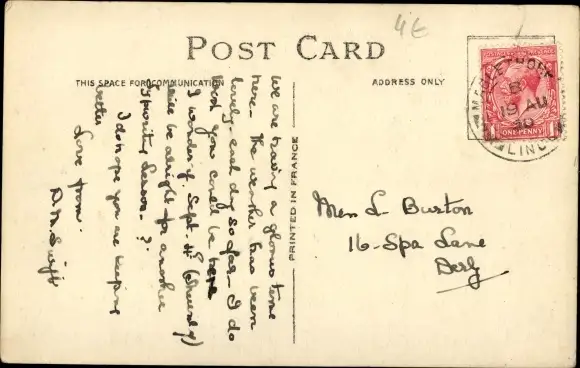 4E
POST CARD
THIS SPACE FOR COMMUNICATION
ADDRESS ONLY
MABLETHORPE
19 AU
LINCS
ONE PENNY
PRINTED IN FRANCE
We are having a glorious time
here - The weather has been
lovely - each day so far - I do
wish you could be here
I wonder if Sept. 4th (Thursday)
will be alright for another
lesson - ?
I do hope you are keeping
better
Love from
D. M. Swift
Mrs L. Burton
16 - Spa Lane
Derby